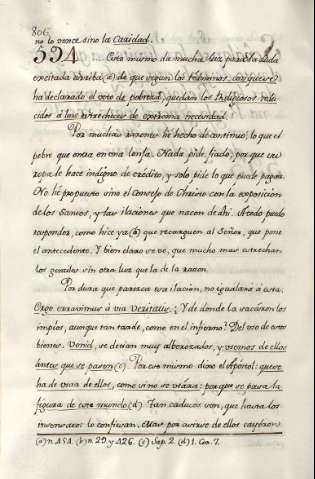 806.
no lo vence sino la Caridad.
594. Esto mismo da mucha luz para la duda
excitada arriba (a) de que segun los terminos, con que se
ha declarado el voto de pobreza, quedan los Religiosos redu-
cidos á las estrecheces de extrema necesidad.
Por muchas veces he hecho de continuo, lo que el
pobre que entra en una lonja. Nada pide fiado, porque su
ropa le hace indigno de crédito, y solo pide lo que puede pagar.
No he propuesto sino el Consejo de Christo con la exposicion
de los Santos, y las ilaciones que nacen de ahi. A todo puedo
responder, como hice ya (b) que reconvengan al Señor, que pone
el antecedente. Y bien claro se vé, que mucho mas estrechan
los quedar sin otra luz que la de la razon.
Por dura que parezca esa ilacion, no igualará á esta.
Ergo erravimus á via veritatis: Y de donde la sacáron los
impios, aunque tan tarde, como en el infierno? Del uso de estos
bienes. Venid, se decian muy alborozados, y usemos de ellos
antes que se pasen (c). Por eso mismo dixo el Apóstol: que se
ha de usar de ellos, como si no se usára; porque se pasa la
figura de este mundo (d). Tan caducos son, que hasta los
mismos lo confiesan. Mas por usarse de ellos cayeron
(a) n. 454. (b) n. 29. y 426. (c) Sap. 2. (d) 1. Cor. 7.